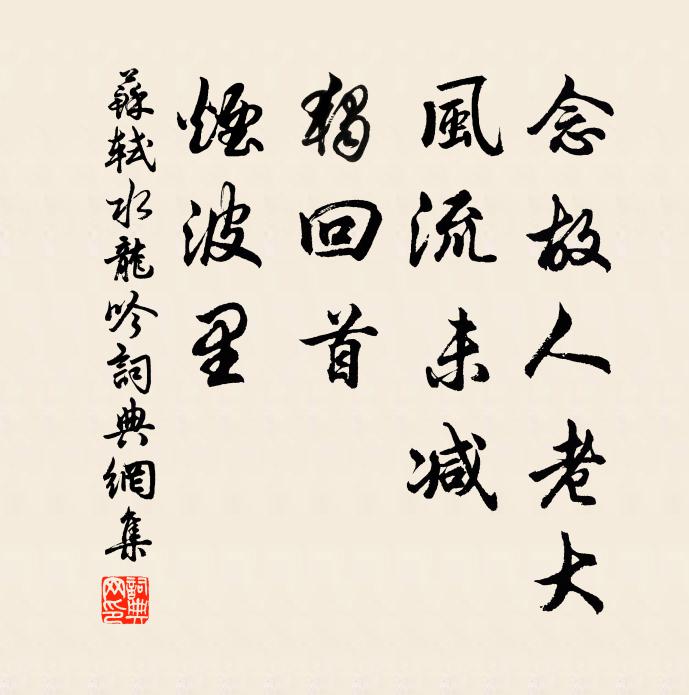 念故人老大
風流未减
獨回首
煙波里
蘇軾水龍吟詞典網集
詞典網印